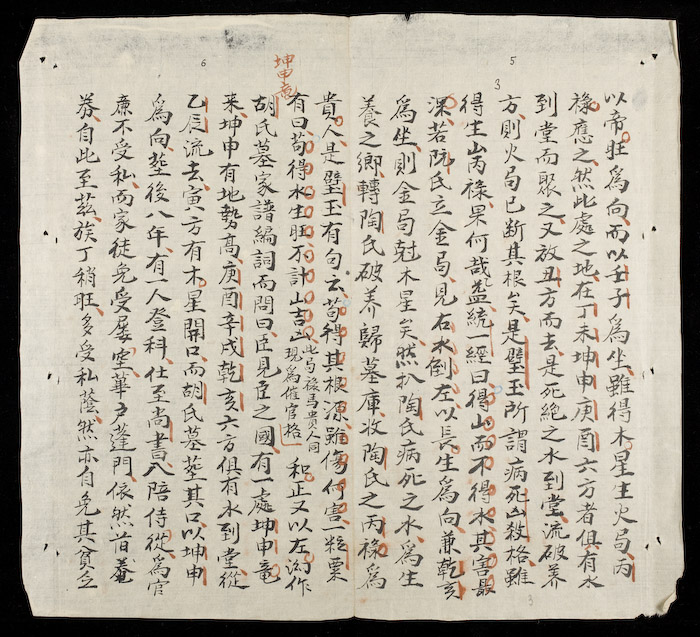 5
3
以帝旺爲向而以壬子爲坐雖得木星生火局丙
祿應之然此處之地在丁未坤申庚酉六方者俱有水
到堂而聚之又放丑方而去是死絶之水到堂流破养
方則火局已断其根矣是璧玉所謂病死山殺格雖
得生山丙祿果何哉盖統一經曰得山而不得水其害最
深若阮氏立金局見右水倒左以長生爲向兼乾亥
爲坐則金局尅木星矣然扒陶氏病死之水爲生
養之鄉轉陶氏破养歸墓庫收陶氏之丙祿爲
6
坤申龍
貴人是璧玉有句云苟得其根源雖傷何害一粒粟
有曰苟得水生旺不計山吉凶此与祿馬貴人同現爲催官格和正又以左泑作
胡氏墓家譜編詞而問曰臣見臣之國有一處坤申竜
来坤申有地勢高庚酉辛戌乾亥六方俱有水到堂從
乙辰流去寅方有木星開口而胡氏墓塟其口以坤申
爲向塟後八年有一人登科仕至尚書八陪侍從爲官
亷不受私而家徒免受屢空華户蓬門依然昔菴
券自此至茲族丁稍旺多受私蔭然亦自免其貧乏
3